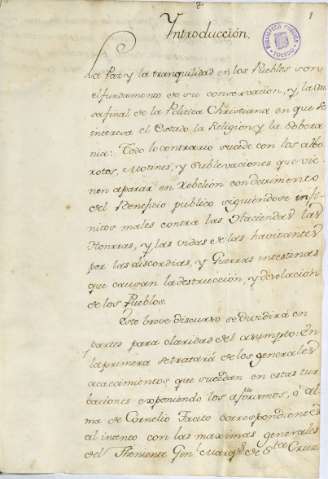 1
Introducción.
La Paz y la tranquilidad en los Pueblos son
el fundamento de su conservacion, y la Cau
sa final de la Politica Christiana en que se
interesa el Estado la Religion y la Sobera
nia: Todo lo contrario sucede con los albo
rotos, Motines, y Sublevaciones que vie
nen aparar en Rebelion con detrimento
del Beneficio publico siguiendose infi
nitos males contra las Haciendas las
Honrras, y las vidas de los havitantes
por las discordias, y Guerras intestinas
que causan la destruccion, y desolacion
de los Pueblos.
Este breve discurso se dividirá en
partes para claridad del asumpto. En
la primera se tratará de los generales
acaecimientos que suceden en estas tur
baciones exponiendo los aforismos, ó al
ma de Cornelio Tacito correspondientes
al intento con las maximas generales
del Theniente Gen.l Marq.s de S.ta Cruz